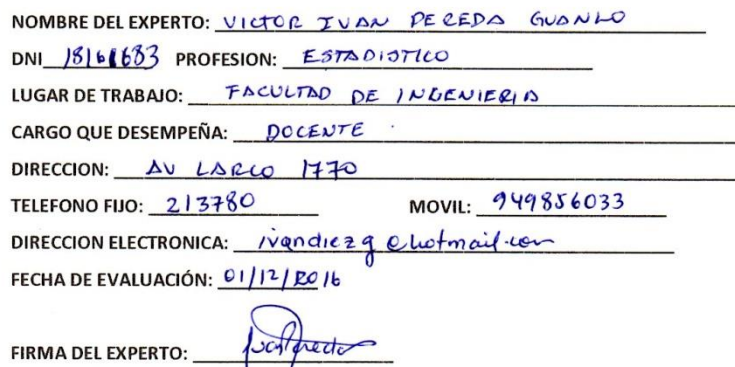 NOMBRE DEL EXPERTO: VICTOR IVAN PEREDA GUANLO
DNI 18161683 PROFESION: ESTADISTICO
LUGAR DE TRABAJO: FACULTAD DE INGENIERIA
CARGO QUE DESEMPEÑA: DOCENTE
DIRECCION: AV LARCO 1770
TELEFONO FIJO: 213780 MOVIL: 949856033
DIRECCION ELECTRONICA: ivandiezg@hotmail.com
FECHA DE EVALUACIÓN: 01/12/2016
FIRMA DEL EXPERTO: